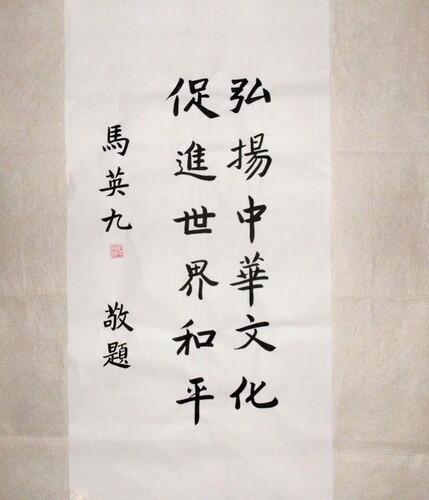 弘揚中華文化
促進世界和平
馬英九 敬題